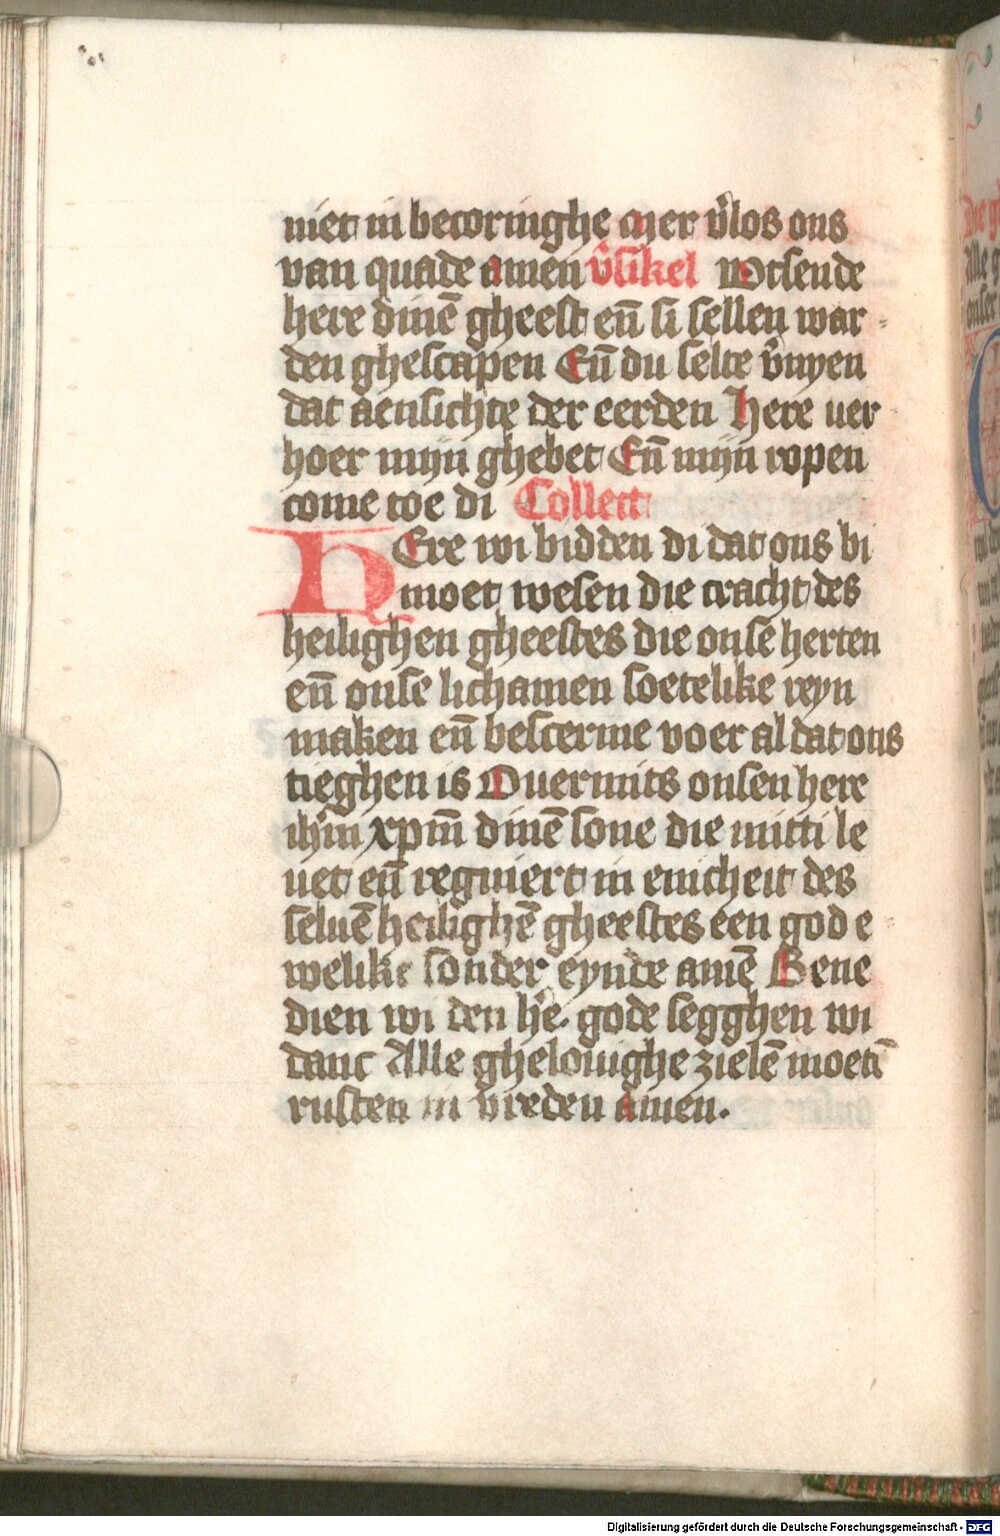 niet in becoringhe Mer v̓los ons
van quade amen v̓sikel Wtsende
here dinē gheest eñ si sellen war-
den ghescapen Eñ du selte v̓nyen
dat aensichte der eerden Here ver
hoer mijn ghebet Eñ mijn ropen
come toe di Collect
HEre wi bidden di dat ons bi
moet wesen die cracht des
heilighen gheestes die onse herten
eñ onse lichamen soetelike reyn
maken eñ bescerme voer al dat ons
tieghen is Ouermits onsen here
ihm̄ xpm̄ dinē sone die mitti le
uet eñ regniert in enicheit des
seluē heilighē gheestes een god e-
welike sonder eynde amē Bene
dien wi den hē. gode segghen wi
danc Alle ghelouighe zielē moetē
rusten in vreden amen.
Die g
Alle g
onser
Digitalisierung gefördert durch die Deutsche Forschungsgemeinschaft - DFG